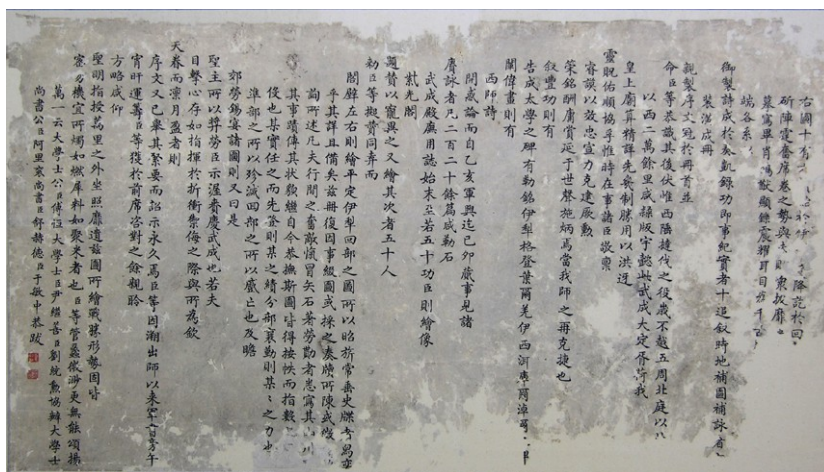 右圖十有
斫陣霆奮席卷之勢與夫
葉寫畢肖鴻猷顯鑠震耀耳目於千古
端各系
御製詩成於奏凱錄功即事紀實者十追敘時地補圖補詠者
裝潢成冊
親製序文冠於冊首並
命臣等恭識其後伏惟西陲撻伐之役歲不越五周北庭以
以西二萬餘里咸隸版宇懿此武成大定胥荷我
皇上廟算精詳先喪制勝用以洪迓
靈貺佑順協孚惟時在事諸臣敬稟
睿謨以效忠宣力克建厥勳
策銘酬庸賞延于世聲施炳焉當我師之再克捷也
敘豐功則有
告成太學之碑有勒銘伊犁格登葉爾羌伊西洱庫爾淖爾
闡偉畫則有
西師詩
開惑論而自乙亥軍興迄己卯蕆事見諸
賡詠者凡二百二十餘篇咸勒石
武成殿廡用誌始末至若五十功臣則繪像
紫光閣
題贊以寵異之又繪其次者五十人
勑臣等擬贊同弆而
閣壁左右則繪平定伊犁回部之圖所以昭旂常垂史牒者爲
乎其詳且備矣茲冊復因事綴圖或採之奏牘所陳或
詢所述凡夫行間之奮敵愾冒矢石著勞勩者悉寫其
其事蹟傳其狀貌繼自今恭撫斯圖皆得按帙而指數
俊也某實任之而先登則某之績分部襄勤則某之力也
準部之所以殄滅回部之所以底亡也及瞻
郊勞錫宴諸圖則又曰是
聖主所以獎勞臣示渥眷慶武成也若夫
目擊心存如指揮於折衝禦侮之際與所為欽
天眷而凜月盈者則
序文又已舉其綮要而詔示永久焉臣等因溯出師以來
宵旰運籌臣等獲於前席咨對之餘親聆
方略咸仰
聖明指授萬里之外坐照靡遺茲圖所繪戰勝形勢固皆
機宜所燭如燃犀料如聚米者也臣等管蠡微測更無能頌揚
萬一云大學士公臣傅恒大學士臣尹繼善臣劉統勳協辦大學士
尚書公臣阿里袞尚書臣舒赫德臣于敏中恭跋